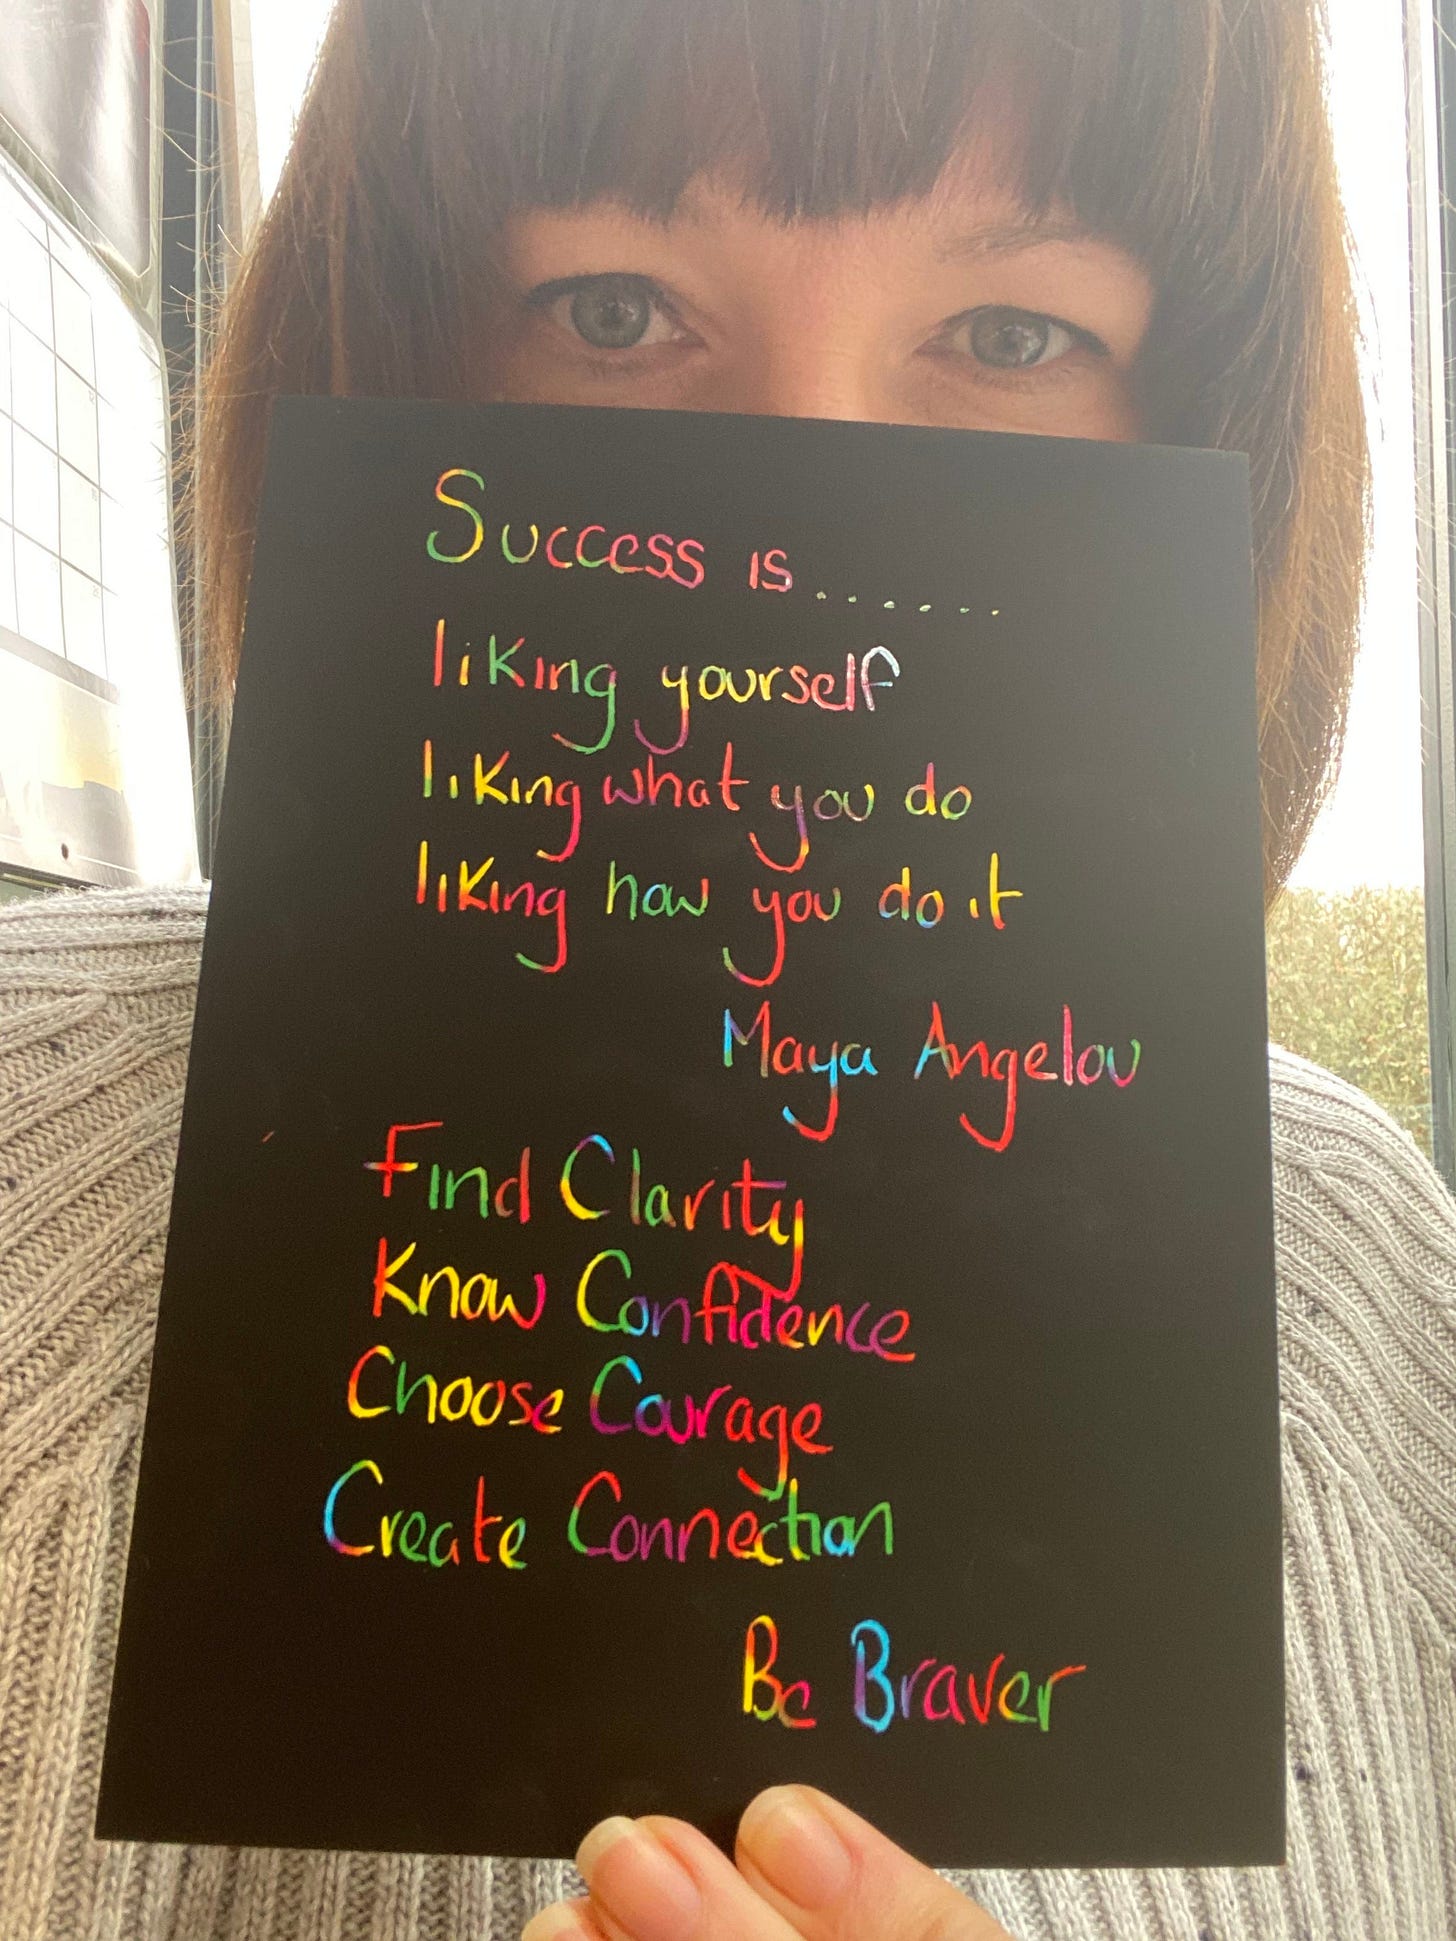 Success is.......
liking yourself
liking what you do
liking how you do it
Maya Angelou
Find Clarity
Know Confidence
Choose Courage
Create Connection
Be Braver